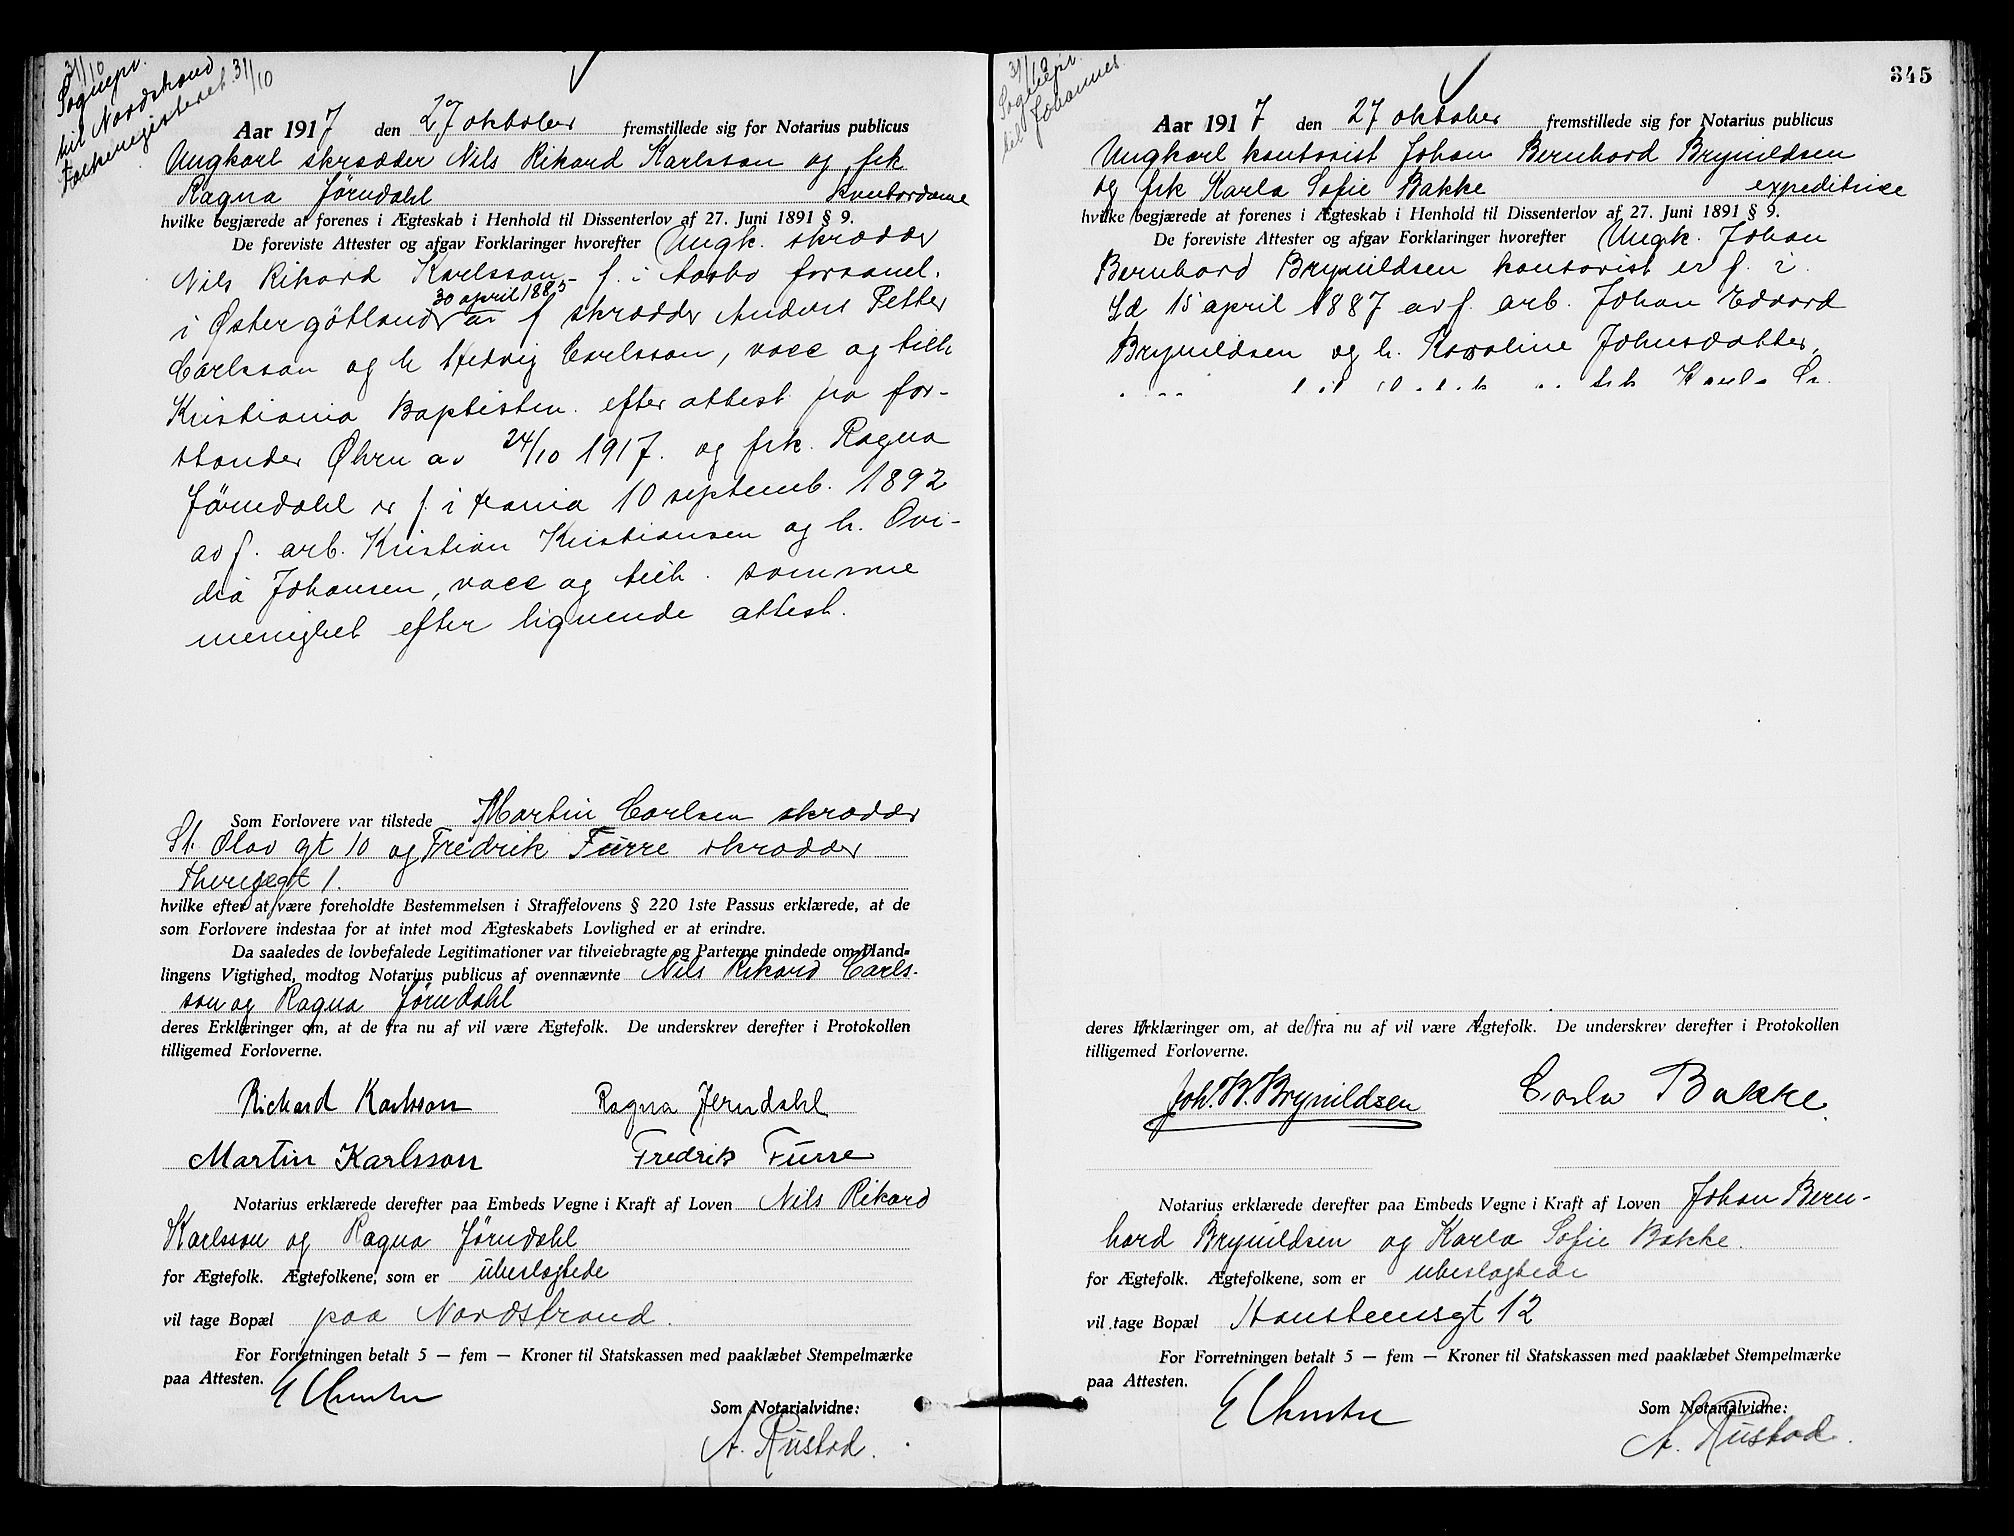 31/10
Sognepr.
til Nordstrand
Folkeregisteret 31/10
Aar 1917 den 27 oktober fremstillede sig for Notarius publicus
Ungkarl skrædder Nils Rikard Karlsson og frk
Ragna Jörndahl kontordame
hvilke begjærede at forenes i Ægteskab i Henhold til Dissenterlov af 27. Juni 1891 § 9.
De foreviste Attester og afgav Forklaringer hvorefter Ungk. skrædder
Nils Rikard Karlsson f. i Aasbo forsaml.
30 april 1885
i Østergötland av f skrædder Anders Petter
Carlsson og h Hedvig Carlsson, vacc og tilh
Kristiania Baptistm. efter attest fra for-
stander Øhrn av 24/10 1917. og frk. Ragna
Jörndahl er f. i Krania 10 septemb. 1892
av f. arb. Kristian Kristiansen og h. Ovi-
dia Johansen, vacc og tilh. samme
menighet efter lignende attest.
Som Forlovere var tilstede Martin Carlsen skrædder
St. Olav gt 10 og Fredrik Furre skrædder
Theresegt 1.
hvilke efter at være foreholdte Bestemmelsen i Straffelovens § 220 1ste Passus erklærede, at de
som Forlovere indestaa for at intet mod Ægteskabets Lovlighed er at erindre.
Da saaledes de lovbefalede Legitimationer var tilveiebragte og Parterne mindede om Hand-
lingens Vigtighed, modtog Notarius publicus af ovennævnte Nils Rikard Carls-
son og Ragna Jörndahl
deres Erklæringer om, at de fra nu af vil være Ægtefolk. De underskrev derefter i Protokollen
tilligemed Forloverne.
Richard Karlsson Ragna Jerndahl
Martin Karlsson Fredrik Furre
Notarius erklærede derefter paa Embeds Vegne i Kraft af Loven Nils Rikard
Karlsson og Ragna Jörndahl
for Ægtefolk. Ægtefolkene, som er ubeslægtede
vil tage Bopæl paa Nordstrand.
For Forretningen betalt 5 — fem — Kroner til Statskassen med paaklæbet Stempelmærke
paa Attesten.
Som Notarialvidne:
A. Rustad.
345
31/10
Sognepr.
til Johannes
Aar 1917 den 27 oktober fremstillede sig for Notarius publicus
Ungkarl kontorist Johan Bernhard Brynildsen
og frk Karla Sofie Bakke expeditrice
hvilke begjærede at forenes i Ægteskab i Henhold til Dissenterlov af 27. Juni 1891 § 9.
De foreviste Attester og afgav Forklaringer hvorefter Ungk. Johan
Bernhard Brynildsen kontorist er f. i
Id 15 april 1887 av f. arb. Johan Edvard
Brynildsen og h. Karoline Johnsdatter,
deres Erklæringer om, at de fra nu af vil være Ægtefolk. De underskrev derefter i Protokollen
tilligemed Forloverne.
Joh. B. Brynildsen Carla Bakke.
Notarius erklærede derefter paa Embeds Vegne i Kraft af Loven Johan Bern-
hard Brynildsen og Karla Sofie Bakke.
for Ægtefolk. Ægtefolkene, som er ubeslægtede
vil tage Bopæl Hansteensgt 12
For Forretningen betalt 5 — fem — Kroner til Statskassen med paaklæbet Stempelmærke
paa Attesten.
Som Notarialvidne:
A. Rustad.